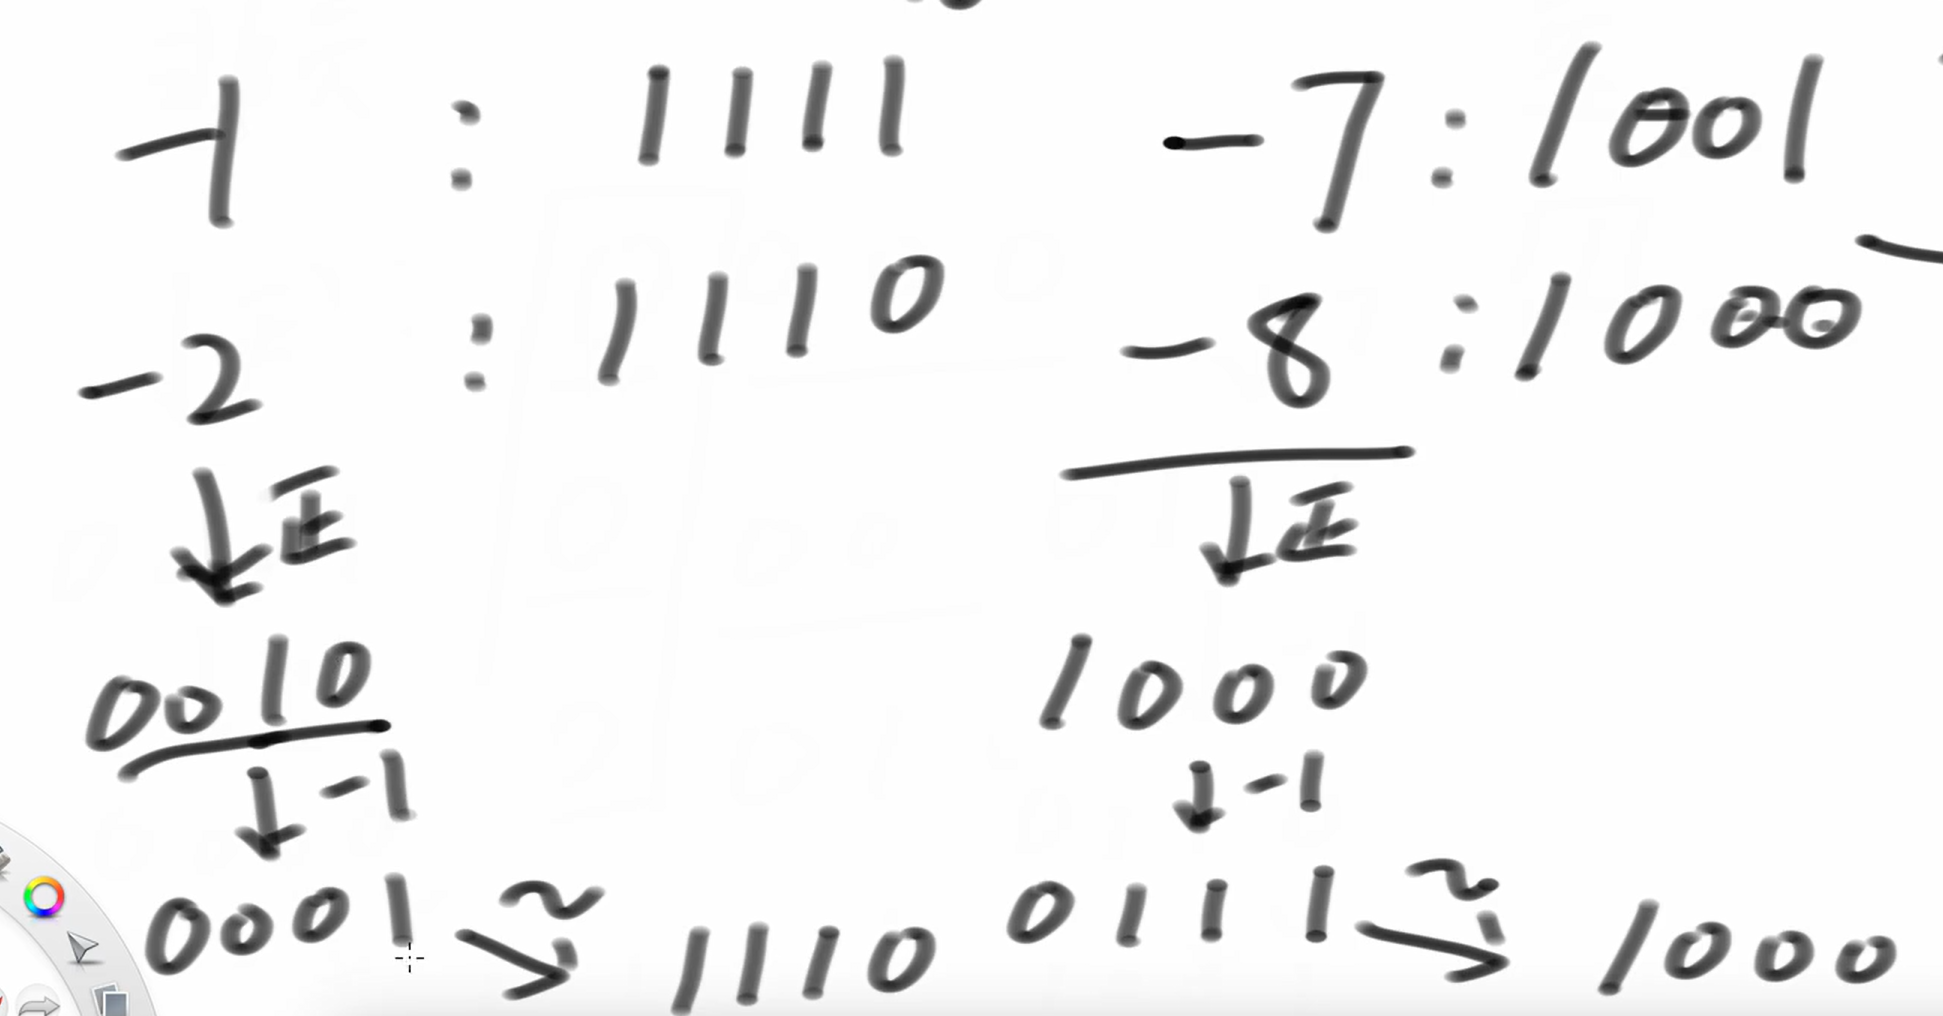 -1 : 1111
-2 : 1110
↓正
0010
↓-1
0001 ~→ 1110
-7 : 1001
-8 : 1000
↓正
1000
↓-1
0111 ~→ 1000